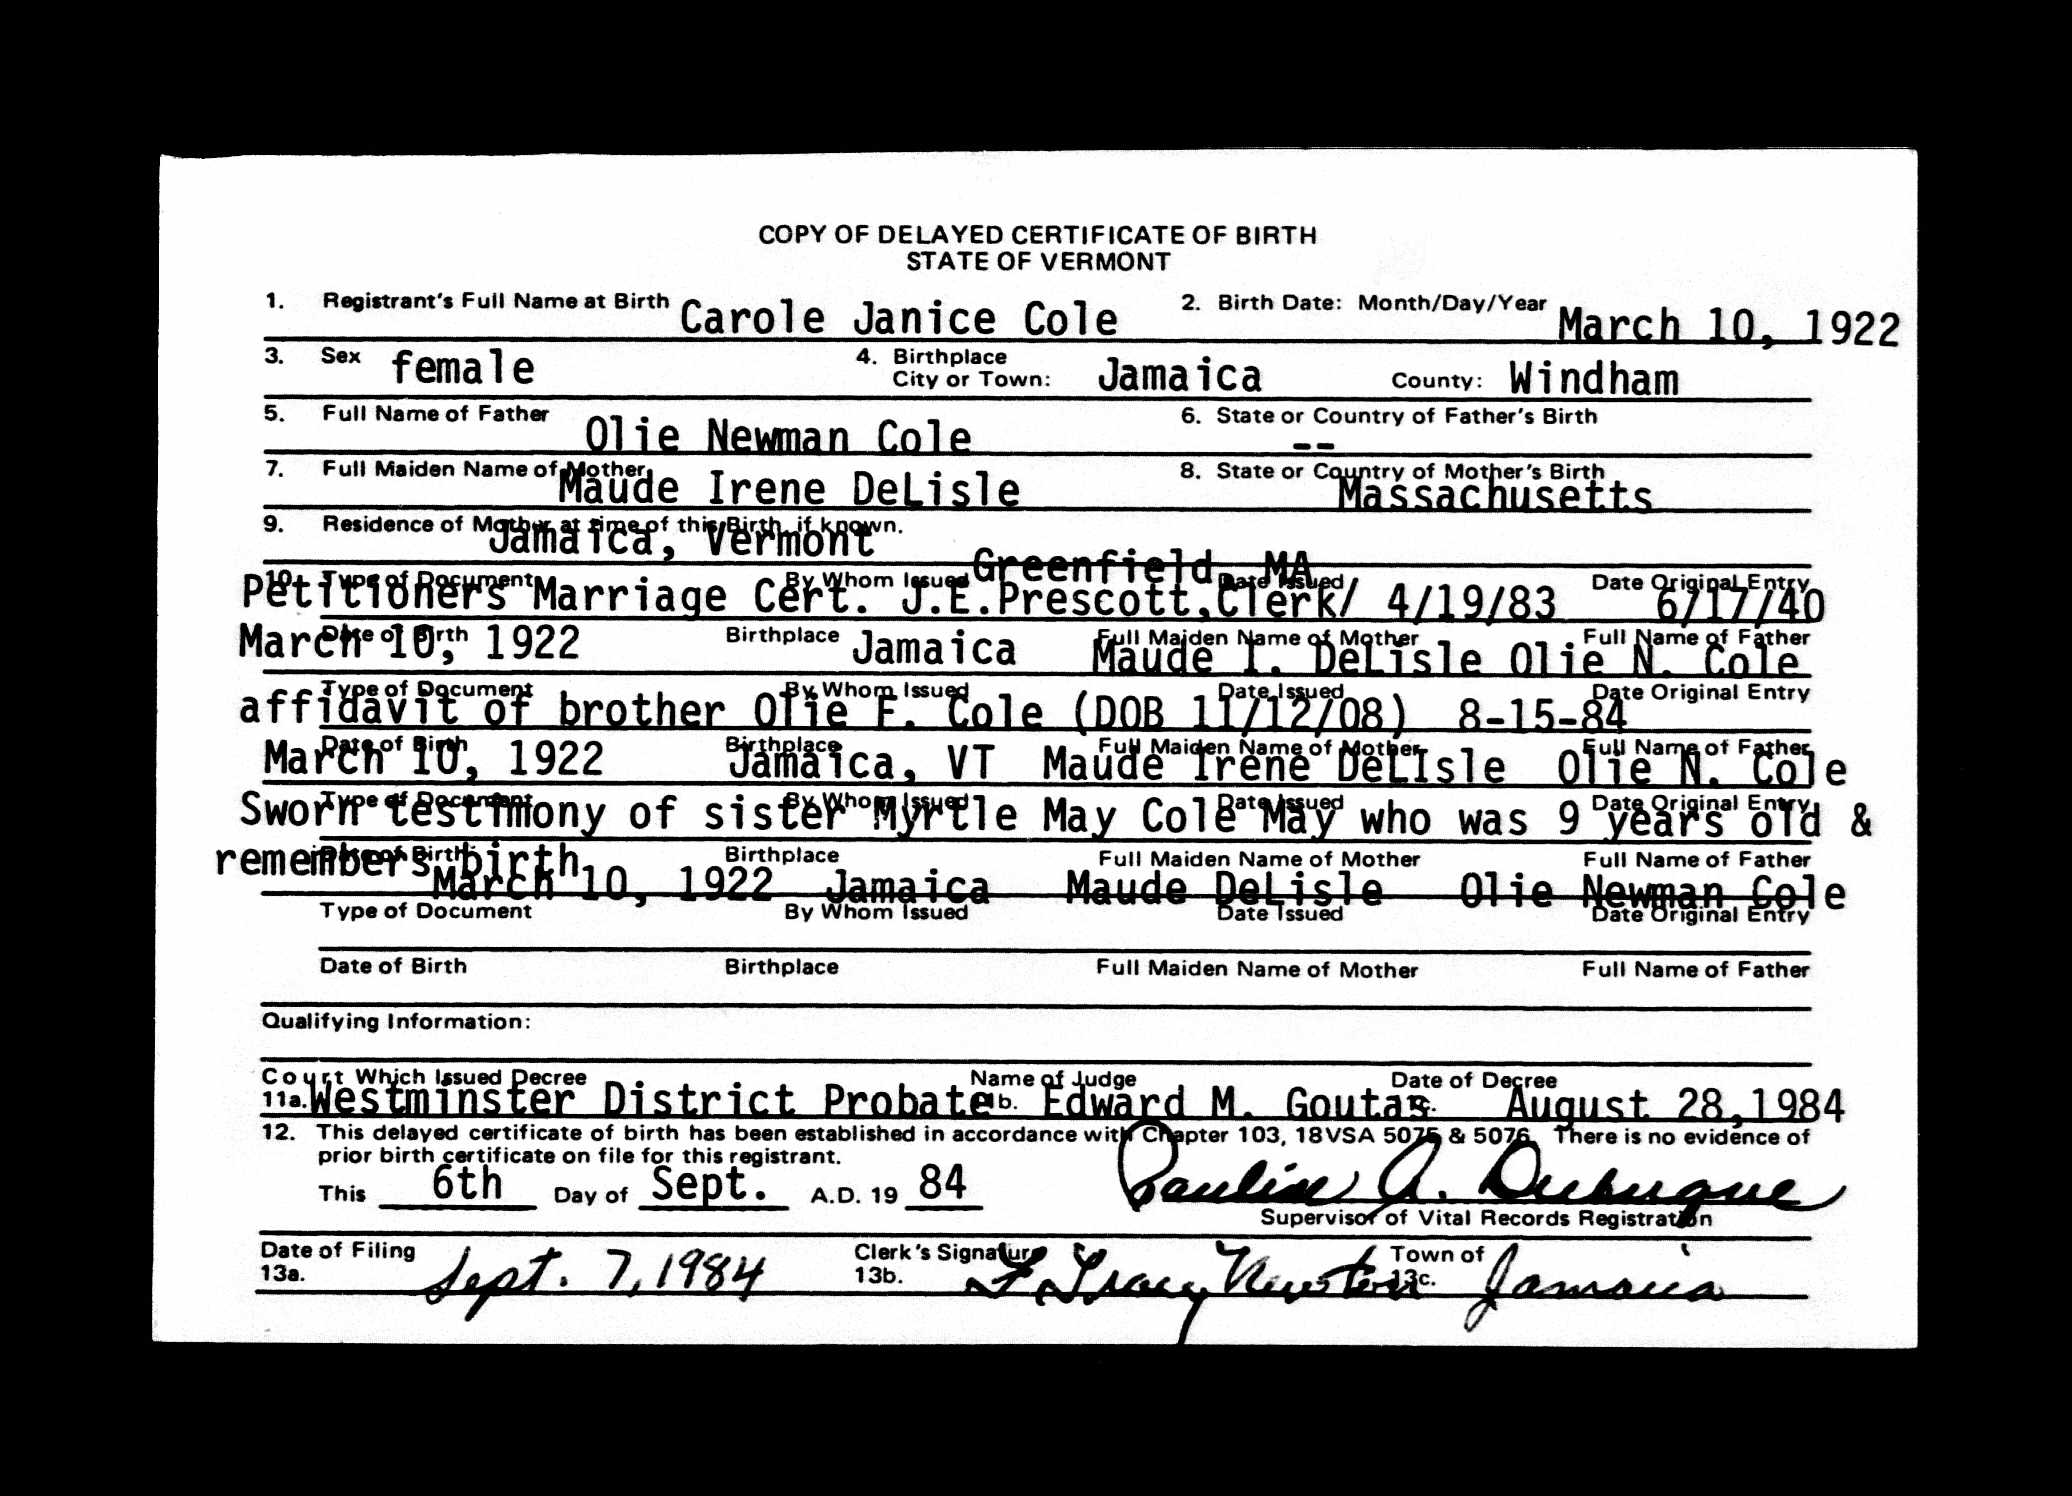 COPY OF DELAYED CERTIFICATE OF BIRTH
STATE OF VERMONT
1. Registrant's Full Name at Birth Carole Janice Cole 2. Birth Date: Month/Day/Year March 10, 1922
3. Sex female 4. Birthplace City or Town: Jamaica County: Windham
5. Full Name of Father Olie Newman Cole 6. State or Country of Father's Birth --
7. Full Maiden Name of Mother Maude Irene DeLisle 8. State or Country of Mother's Birth Massachusetts
9. Residence of Mother at time of this Birth, if known. Jamaica, Vermont
Greenfield, MA
10. Type of Document By Whom Issued Date Issued Date Original Entry
Petitioners Marriage Cert. J.E.Prescott,Clerk/ 4/19/83 6/17/40
Date of Birth Birthplace Full Maiden Name of Mother Full Name of Father
March 10, 1922 Jamaica Maude I. DeLisle Olie N. Cole
Type of Document By Whom Issued Date Issued Date Original Entry
affidavit of brother Olie F. Cole (DOB 11/12/08) 8-15-84
Date of Birth Birthplace Full Maiden Name of Mother Full Name of Father
March 10, 1922 Jamaica, VT Maude Irene DeLIsle Olie N. Cole
Type of Document By Whom Issued Date Issued Date Original Entry
Sworn testimony of sister Myrtle May Cole May who was 9 years old &
remembers birth
Date of Birth Birthplace Full Maiden Name of Mother Full Name of Father
March 10, 1922 Jamaica Maude DeLisle Olie Newman Cole
Type of Document By Whom Issued Date Issued Date Original Entry
Date of Birth Birthplace Full Maiden Name of Mother Full Name of Father
Qualifying Information:
Court Which Issued Decree Name of Judge Date of Decree
11a. Westminster District Probate 11b. Edward M. Goutas 11c. August 28,1984
12. This delayed certificate of birth has been established in accordance with Chapter 103, 18VSA 5075 & 5076. There is no evidence of
prior birth certificate on file for this registrant.
This 6th Day of Sept. A.D. 19 84 Pauline A. Dubuque
Supervisor of Vital Records Registration
Date of Filing Clerk's Signature Town of
13a. Sept. 7, 1984 13b. F Tracy Newton 13c. Jamaica